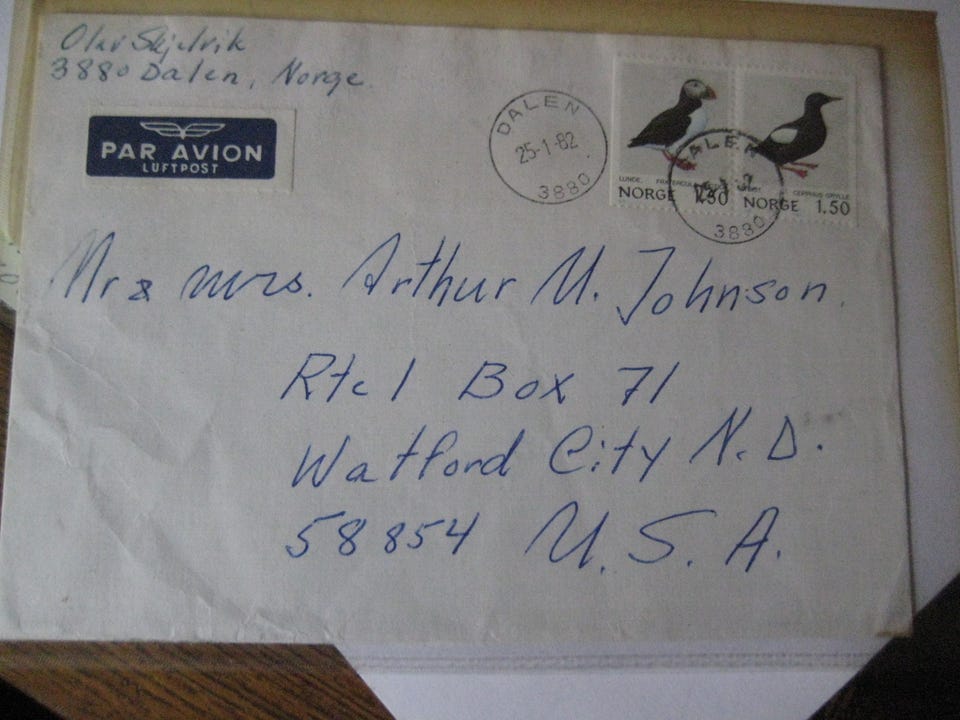 Olav Skjelvik
3880 Dalen, Norge
PAR AVION
LUFTPOST
DALEN
25-1-82
3880
LUNDE.
NORGE 1.50
CEPPHUS GRYLLE
NORGE 1.50
DALEN
3880
Mr & mrs. Arthur M. Johnson.
Rte 1 Box 71
Watford City N.D.
58854 U.S.A.